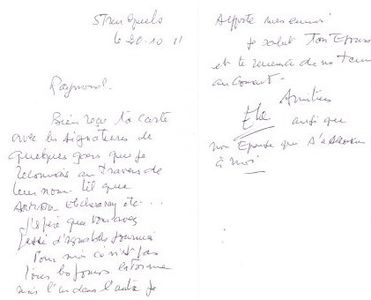 le 20.10 11
Raymond.
Bien reçu ta carte
avec les signatures de
quelques gars que je
reconnais au travers de
leur nom tel que
etc...
J'espère que vous avez
passé d'agréables journées
Pour moi ce n'est pas
tous les jours la forme
mais l'un dans l'autre je
supporte mes ennuis
Je salut ton Epouse
et te remercie de me tenir
au courant.
Amitiés
ainsi que
mon Epouse qui s'associe
à moi